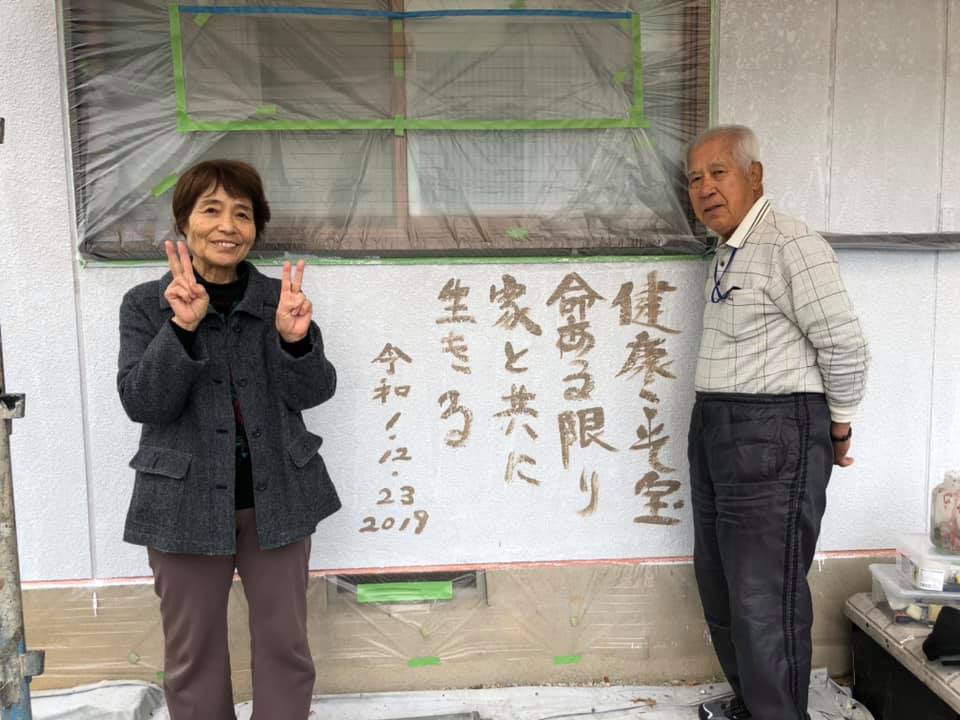 健康こそ宝
命ある限り
家と共に
生きる
令和1.12.23
2019